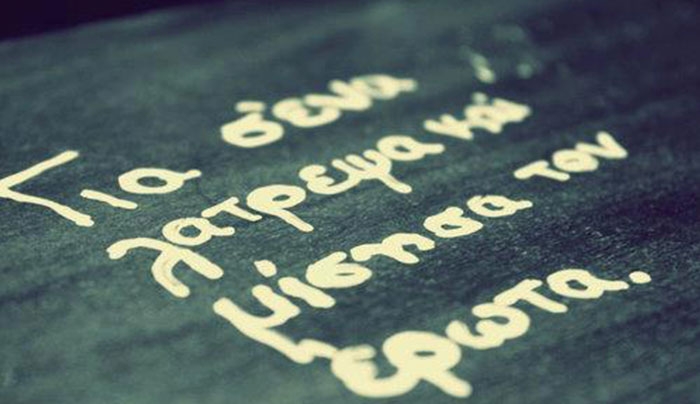 Για σένα
λατρεψα και
μίσησα τον
έρωτα.